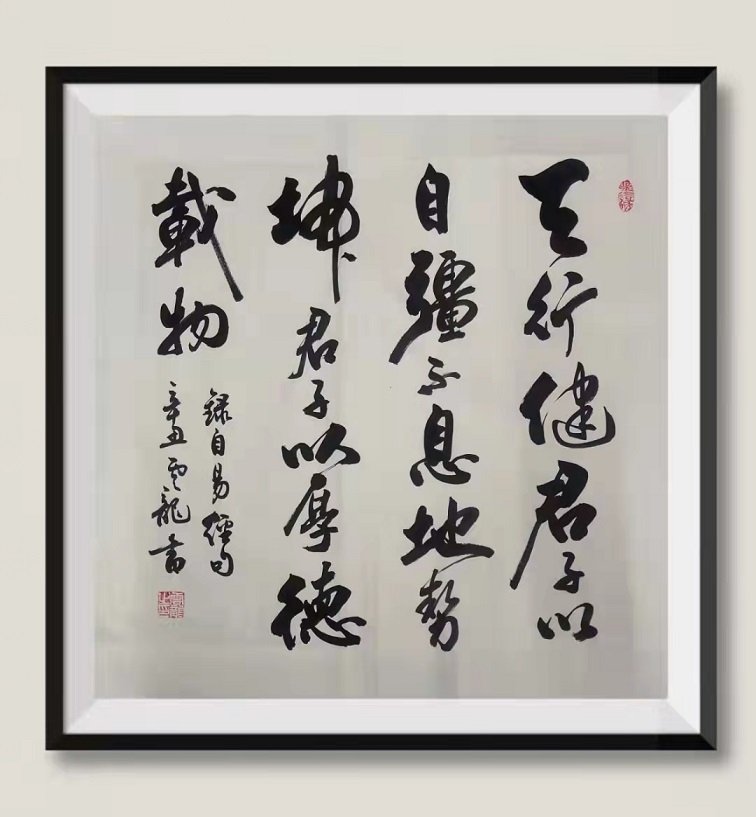 天行健君子以
自彊不息地勢
坤君子以厚德
載物
錄自易經句
辛丑雲龍書